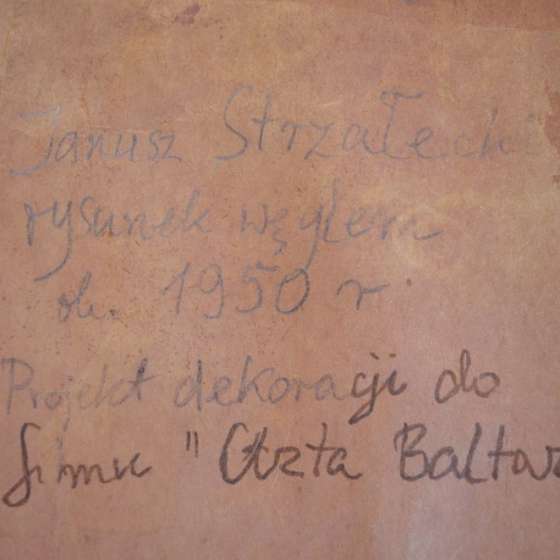 Janusz Strzałecki
rysunek węglem
ok. 1950 r.
Projekt dekoracji do
filmu "Uczta Baltaz